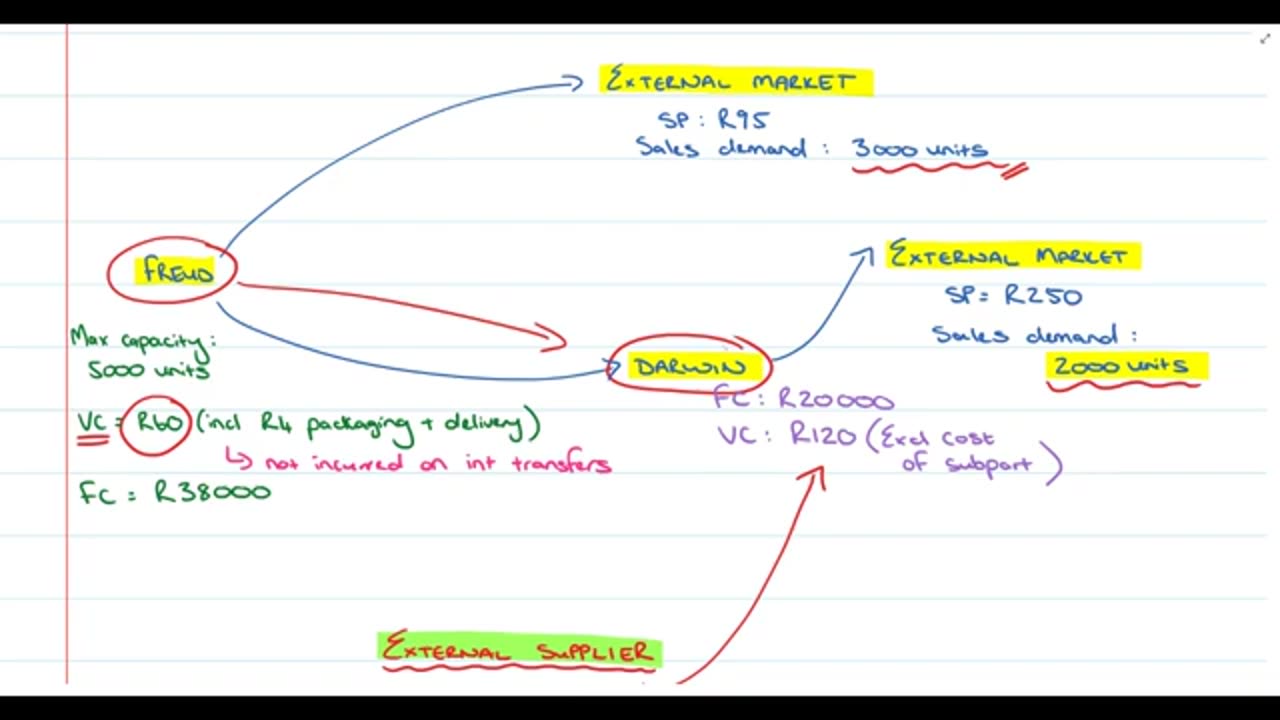 EXTERNAL MARKET
SP : R95
Sales demand : 3000 units
FREUD
EXTERNAL MARKET
SP = R250
Sales demand :
2000 units
Max capacity :
5000 units
DARWIN
FC : R20000
VC = R60 (incl R4 packaging + delivery)
VC : R120 (Excl cost
of subpart)
↳ not incurred on int transfers
FC = R38000
EXTERNAL SUPPLIER